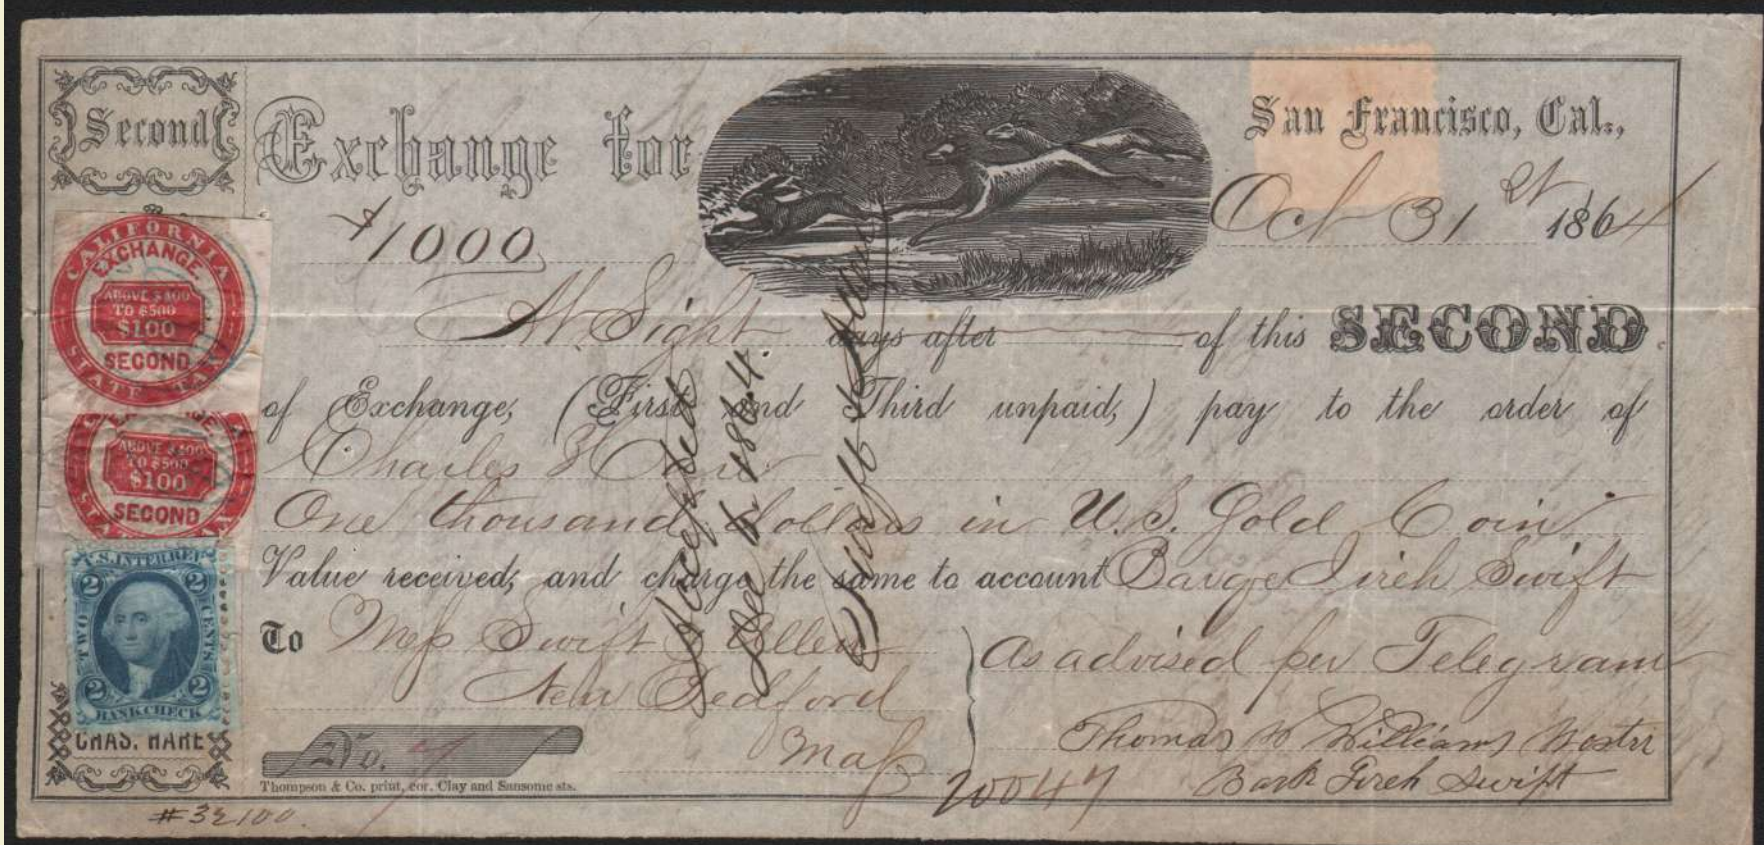 Second
Exchange for
San Francisco, Cal.,
$1000
Oct 31st 1864
At Sight days after of this SECOND
of Exchange, (First and Third unpaid,) pay to the order of
Charles Hare
One thousand dollars in U.S. Gold Coin
Value received, and charge the same to account Barque Jireh Swift
To Mess Swift & Allen
New Bedford
Mass
As advised per Telegram
Thomas W Williams Master
Bark Jireh Swift
No.
Thompson & Co. print, cor. Clay and Sansome sts.
20047
#32100
Accepted
Dec 6 1864.
Swift & Allen
CALIFORNIA
EXCHANGE
ABOVE $400
TO $500
$100
SECOND
STATE
ABOVE $400
TO $500
$100
SECOND
U.S. INTER. REV.
2 2
TWO CENTS
2 2
BANK CHECK
CHAS. HARE